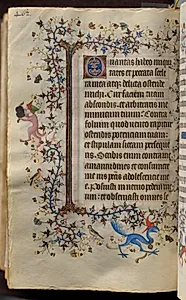 Quantas habeo iniqui
tates et peccata scele
ra mea atqz delicta ostende
michi. Cur faciem tuam
abscondis et arbitraris me
inimicum tuum. Contra
folium quod vento rapitur
ostendis potenciam tuam
et stipulam siccam perseque
ris. Scribis enim contra me
amaritudines et consumere
me vis peccatis adolescencie me
e. Posuisti in nervo pedem me
um et observasti omnes se